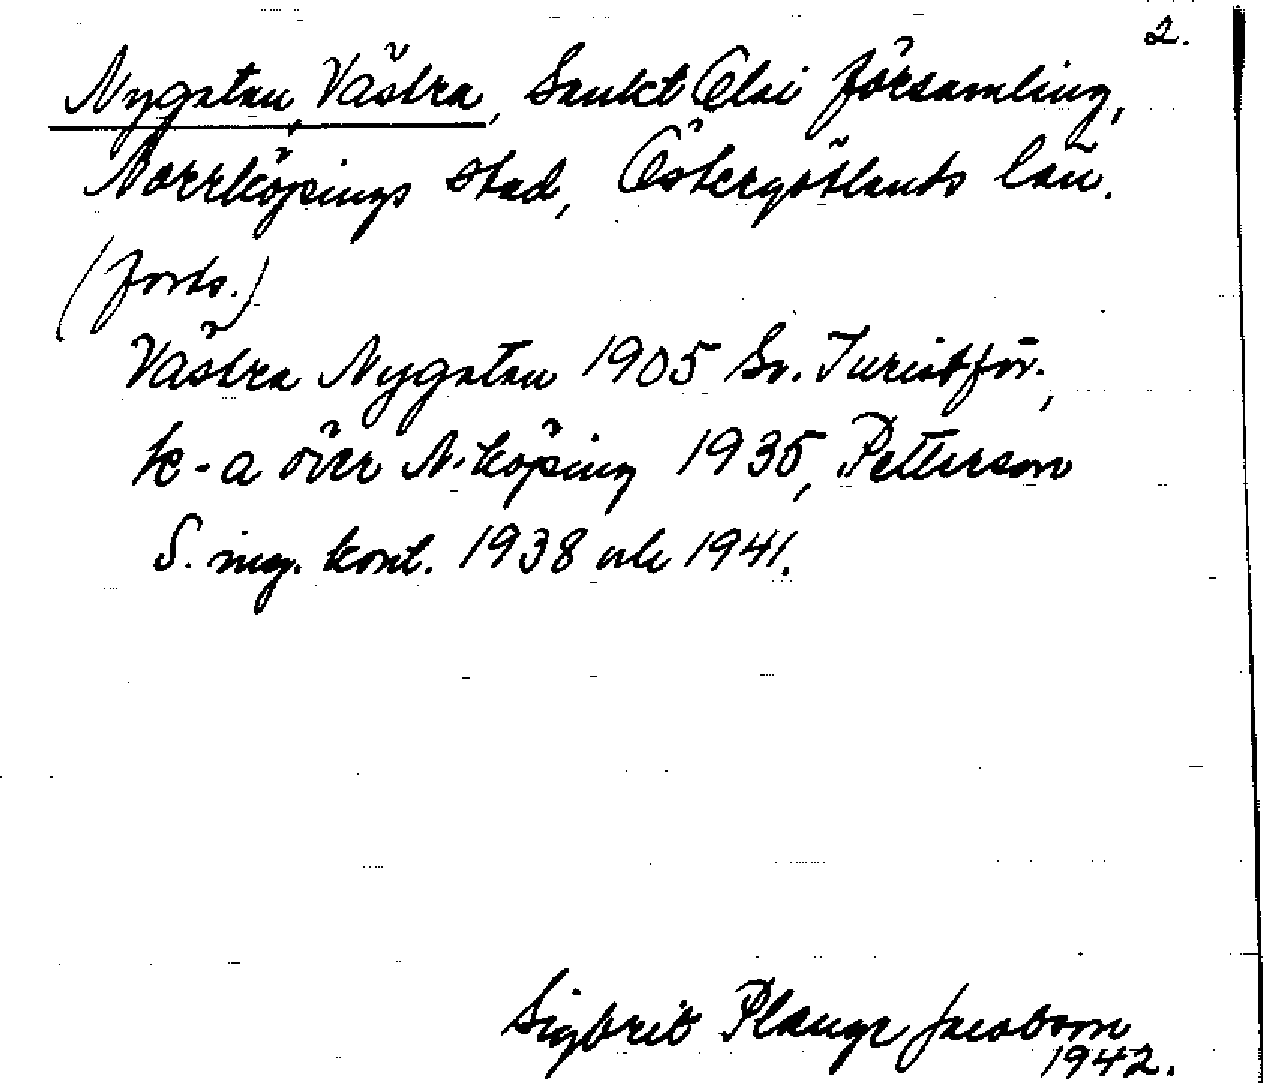 2.
Nygatan, Västra, Sankt Olai församling,
Norrköpings stad, Östergötlands län.
(forts.)
Västra Nygatan 1905 Sv. Turistför.,
k-a över N.köping 1935, Petterson
S. ing. kont. 1938 och 1941.
Sigbrit Plænge Jacobson
1942.